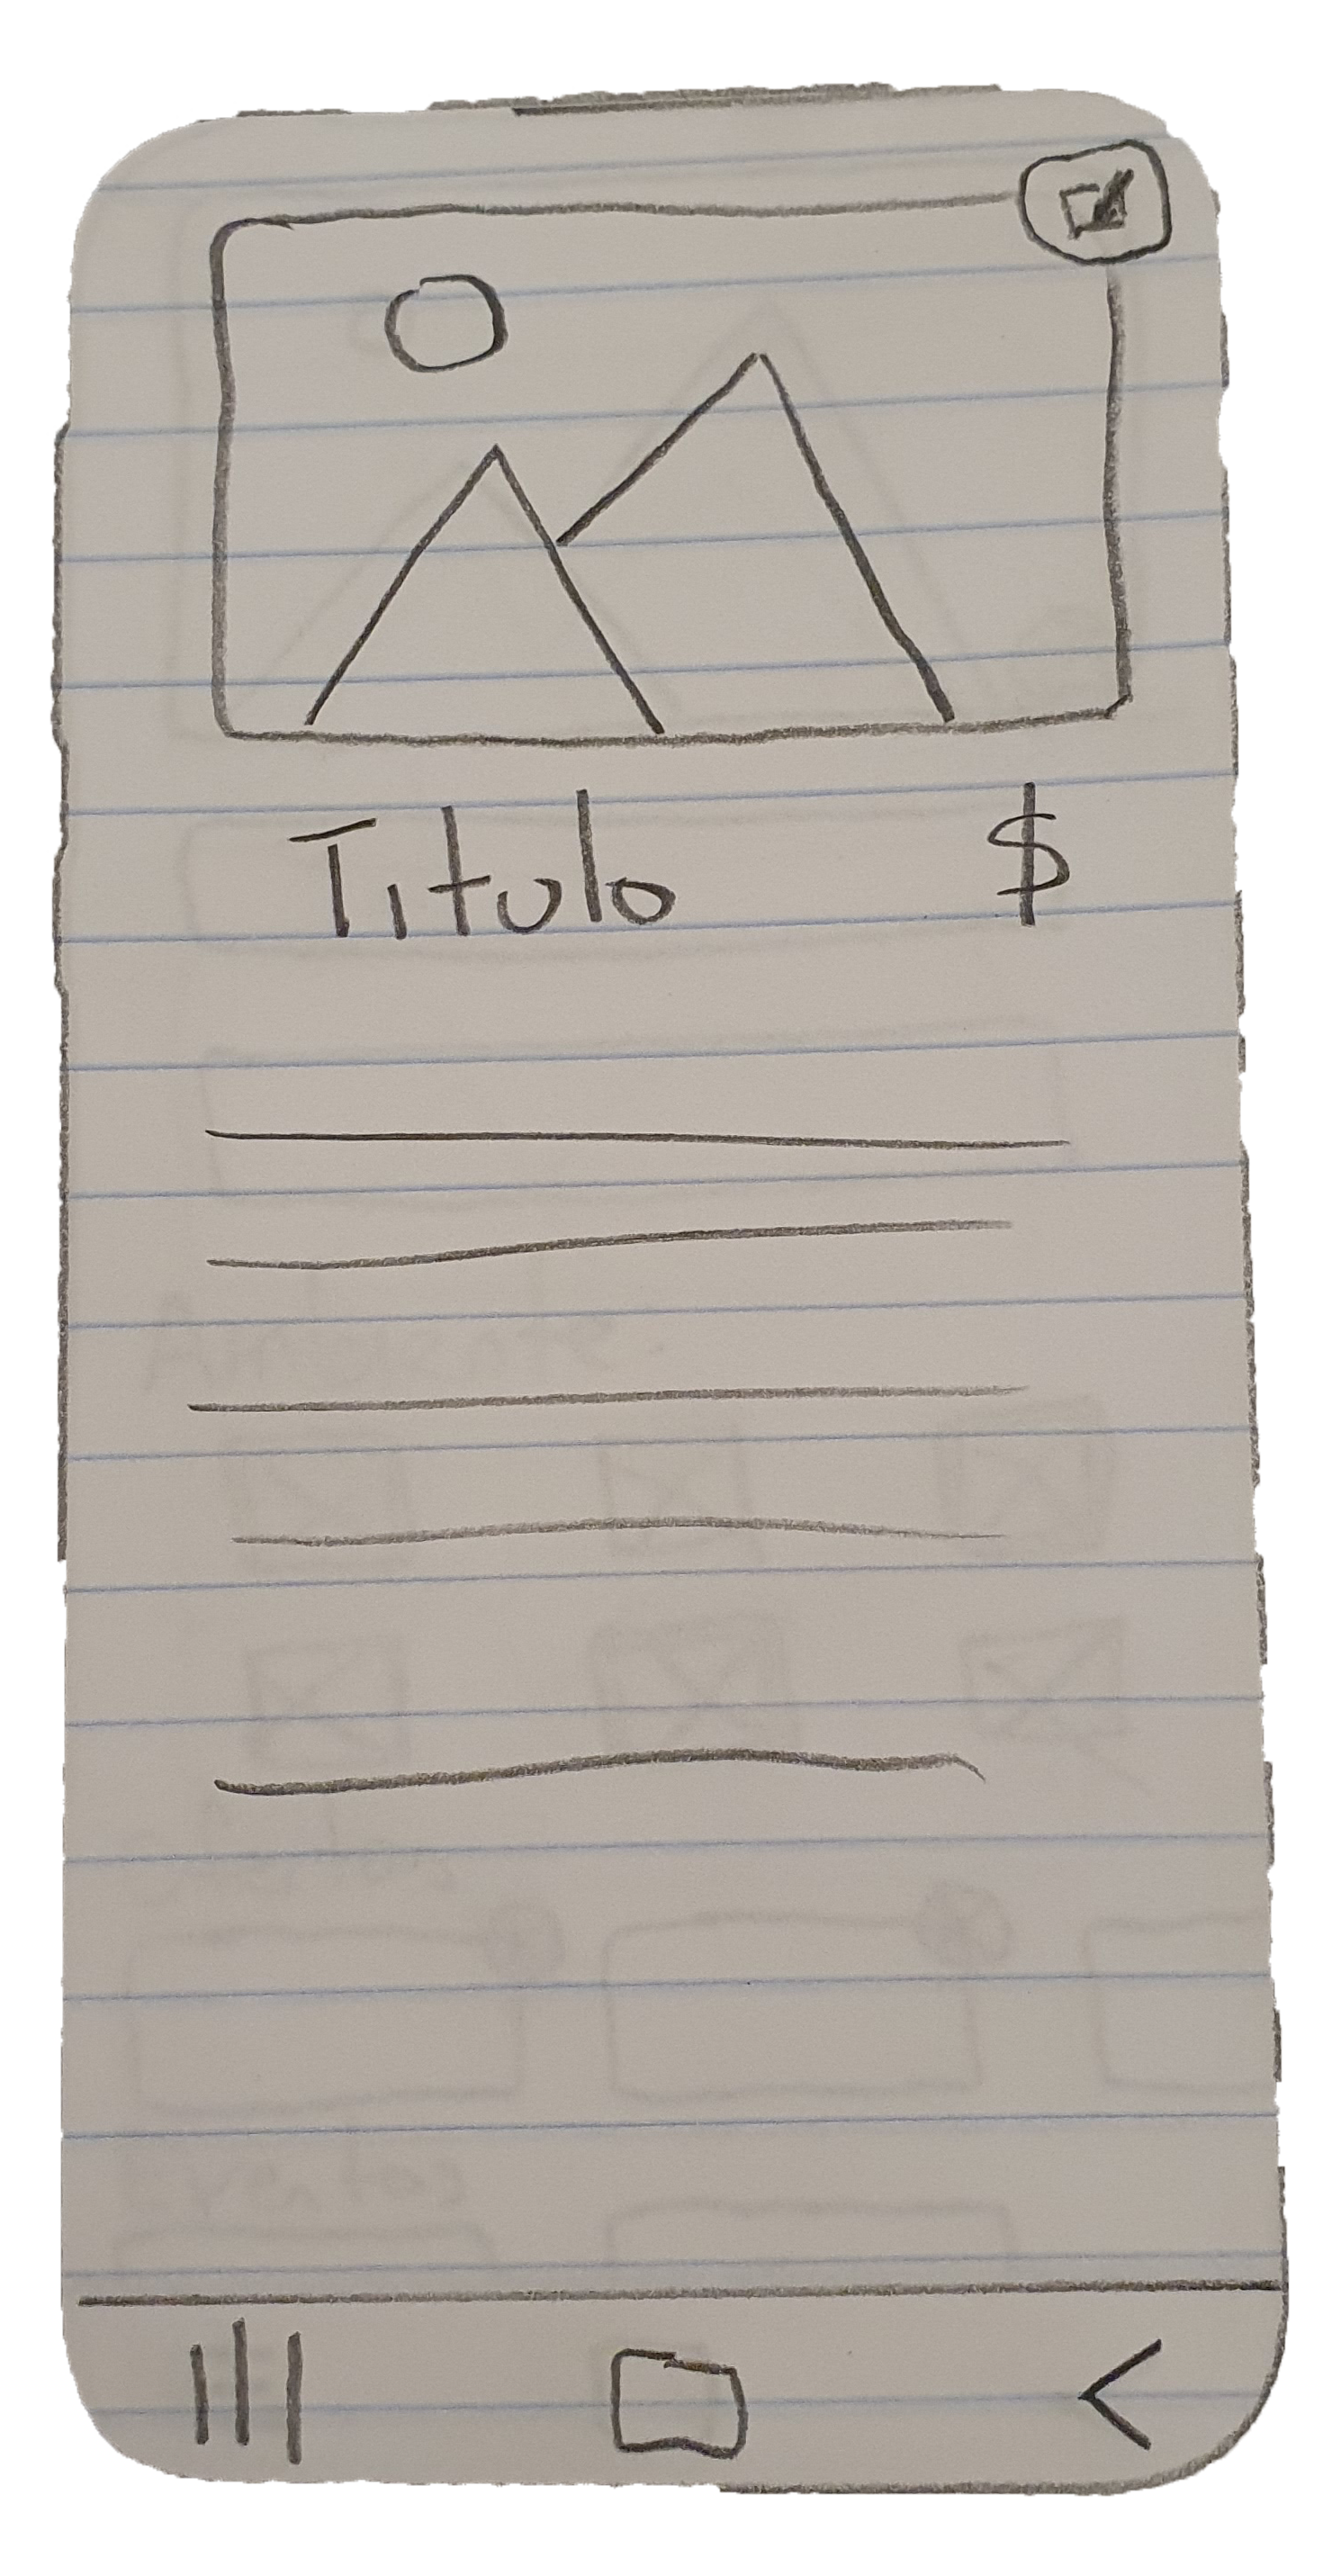 Titulo $